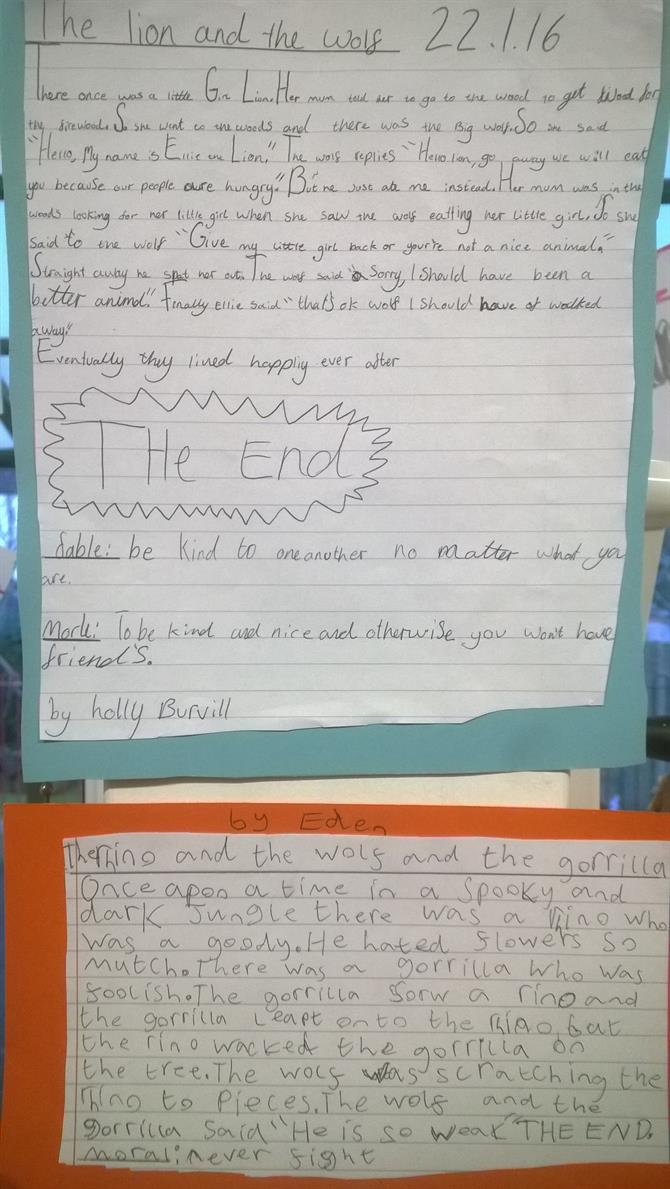 The lion and the wolf 22.1.16
There once was a little Girl Lion. Her mum told her to go to the wood to get wood for
the firewood. So she went to the woods and there was the Big wolf. So she said
"Hello, My name is Ellie the Lion." The wolf replies "Hello lion, go away we will eat
you because our people are hungry." But he Just ate me instead. Her mum was in the
woods looking for her little girl when she saw the wolf eatting her little girl. So she
said to the wolf "Give my little girl back or your're not a nice animal."
Straight away he spat her out. The wolf said "Sorry, I should have been a
better animal." Finally Ellie said "that's ok wolf I should have of walked
away."
Eventually they lived happliy ever after
THe End
fable: be kind to oneanother no matter what you
are.
Morle: To be kind and nice and otherwise you won't have
friend's.
by holly Burvill
by Eden
The Rhino and the wolf and the gorrilla
Once apon a time in a spooky and
dark Jungle there was a rhino who
was a goody. He hated flowers so
mutch. There was a gorrilla who was
foolish. The gorrilla sorw a rino and
the gorrilla Leapt onto the Rhino but
the rino wacked the gorrilla on
the tree. The wolf was scratching the
rhino to pieces. The wolf and the
gorrilla said "He is so weak" THE END.
moral: never fight